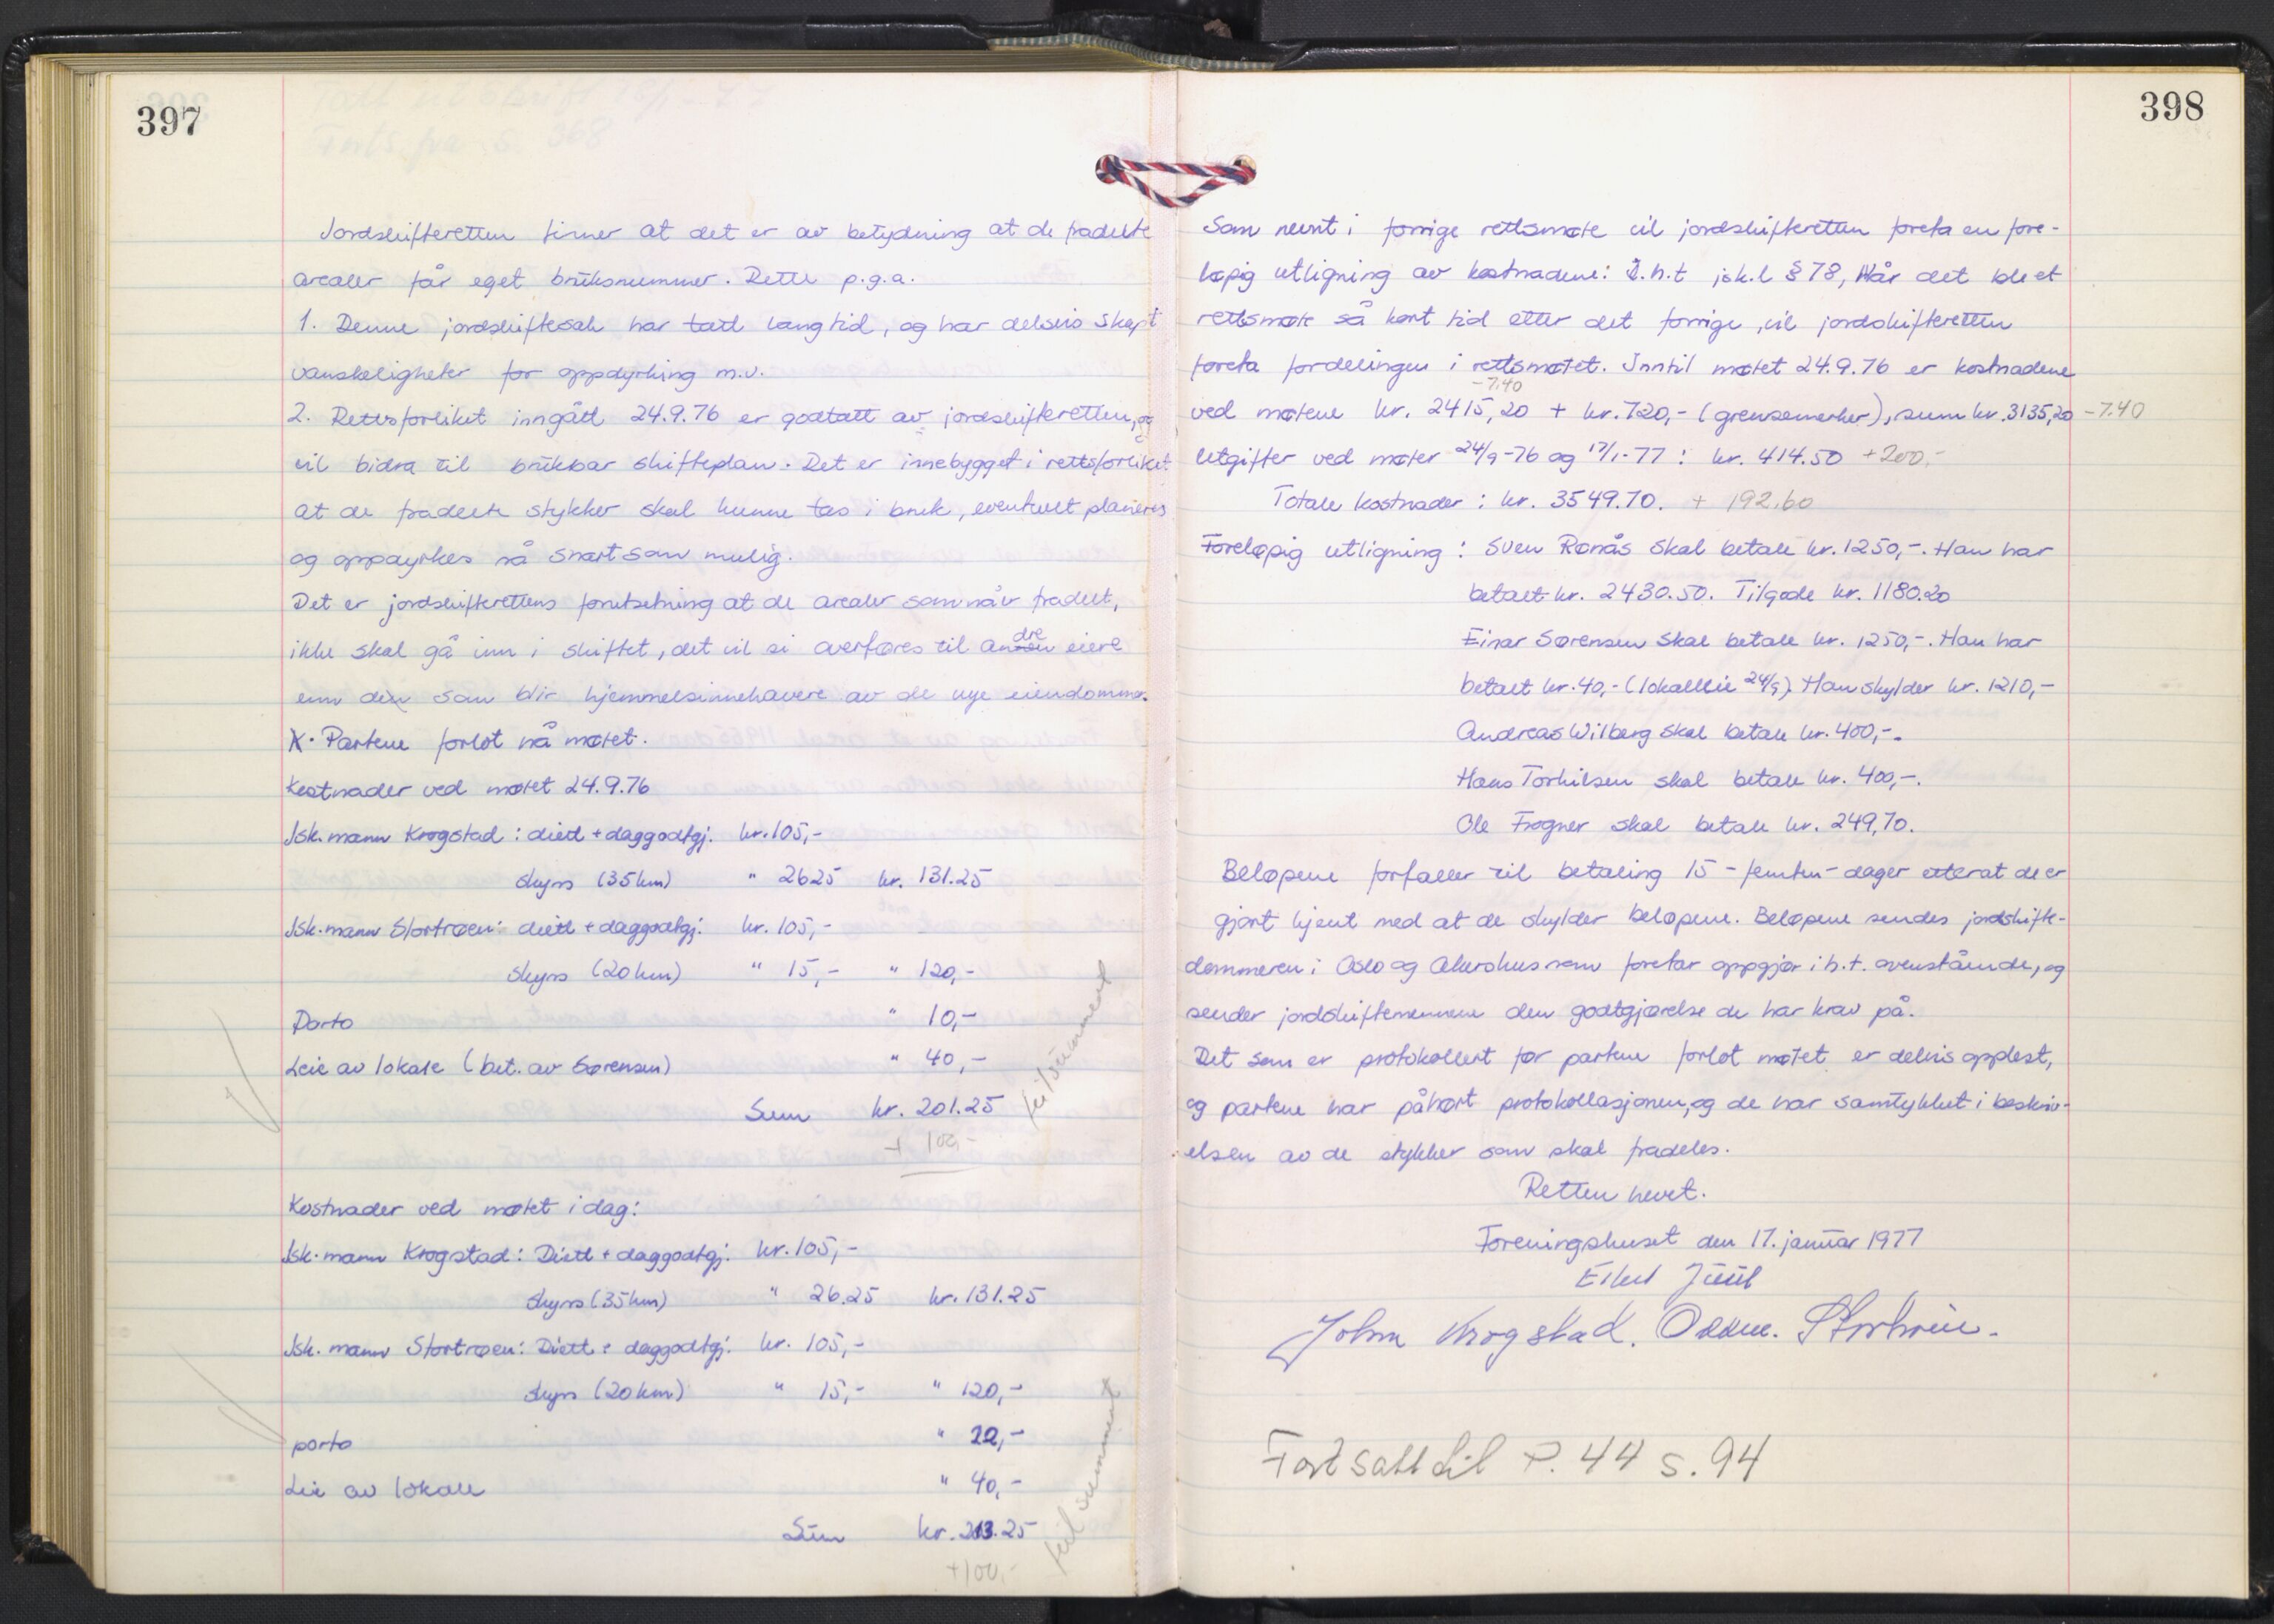 397
Jordskifteretten finner at det er av betydning at de fradelte
arealer får eget bruksnummer. Dette p.g.a.
1. Denne jordskiftesak har tatt lang tid, og har delvis skapt
vanskeligheter for oppdyrking m.v.
2. Rettsforliket inngått 24.9.76 er godtatt av jordskifteretten, og
vil bidra til brukbar skifteplan. Det er innebygget i rettsforliket
at de fradelte stykker skal kunne tas i bruk, eventuelt planeres
og oppdyrkes så snart som mulig.
Det er jordskifterettens forutsetning at de arealer som nå er fradelt,
dre
ikke skal gå inn i skiftet, det vil si overføres til annen eiere
enn den som blir hjemmelsinnehavere av de nye eiendommer.
X. Partene forlot nå møtet.
Kostnader ved møtet 24.9.76
Jsk.mann Krogstad: diett + daggodtgj. kr. 105,-
skyss (35 km) " 2625 kr. 131.25
Jsk.mann Stortrøen: diett + daggodtgj. kr. 105,-
skyss (20 km) " 15,- " 120,-
Porto " 10,-
Leie av lokale (bet. av Sørensen) " 40,-
Sum kr. 201.25
+ 100,-
feilsummert
Kostnader ved møtet i dag:
Jsk.mann Krogstad: Diett + daggodtgj. kr. 105,-
skyss (35 km) " 26.25 kr. 131.25
Jsk.mann Stortrøen: Diett + daggodtgj. kr. 105,-
skyss (20 km) " 15,- " 120,-
porto " 22,-
Leie av lokale " 40,-
Sum kr. 213.25
+100,-
feilsummert
398
Som nevnt i forrige rettsmøte vil jordskifteretten foreta en fore-
løpig utligning av kostnadene: i.h.t jsk.l § 78, Når det ble et
rettsmøte så kort tid etter det forrige, vil jordskifteretten
foreta fordelingen i rettsmøtet. Inntil møtet 24.9.76 er kostnadene
-7.40
ved møtene kr. 2415,20 + kr. 720,- (grensemerker), sum kr. 3135,20 -7.40
Utgifter ved møter 24/9-76 og 17/1-77: kr. 414.50 +200,-
Totale kostnader: kr. 3549.70. + 192.60
Foreløpig utligning: Sven Rønås skal betale kr. 1250,-. Han har
betalt kr. 2430.50. Tilgode kr. 1180.20
Einar Sørensen skal betale kr. 1250,-. Han har
betalt kr. 40,- (lokalleie 24/9). Han skylder kr. 1210,-
Andreas Wilberg skal betale kr. 400,-.
Hans Torkilsen skal betale kr. 400,-.
Ole Frogner skal betale kr. 249,70.
Beløpene forfaller til betaling 15 - femten - dager etter at de er
gjort kjent med at de skylder beløpene. Beløpene sendes jordskifte-
dommeren i Oslo og Akershus som foretar oppgjør i h.t. ovenstående, og
sender jordskiftemennene den godtgjørelse de har krav på.
Det som er protokollert før partene forlot møtet er delvis opplest,
og partene har påhørt protokollasjonen, og de har samtykket i beskriv-
elsen av de stykker som skal fradeles.
Retten hevet.
Foreningshuset den 17. januar 1977
Eilert Juul
John Krogstad. Oddm. Stortrøen.
Fortsatt til P. 44 s. 94